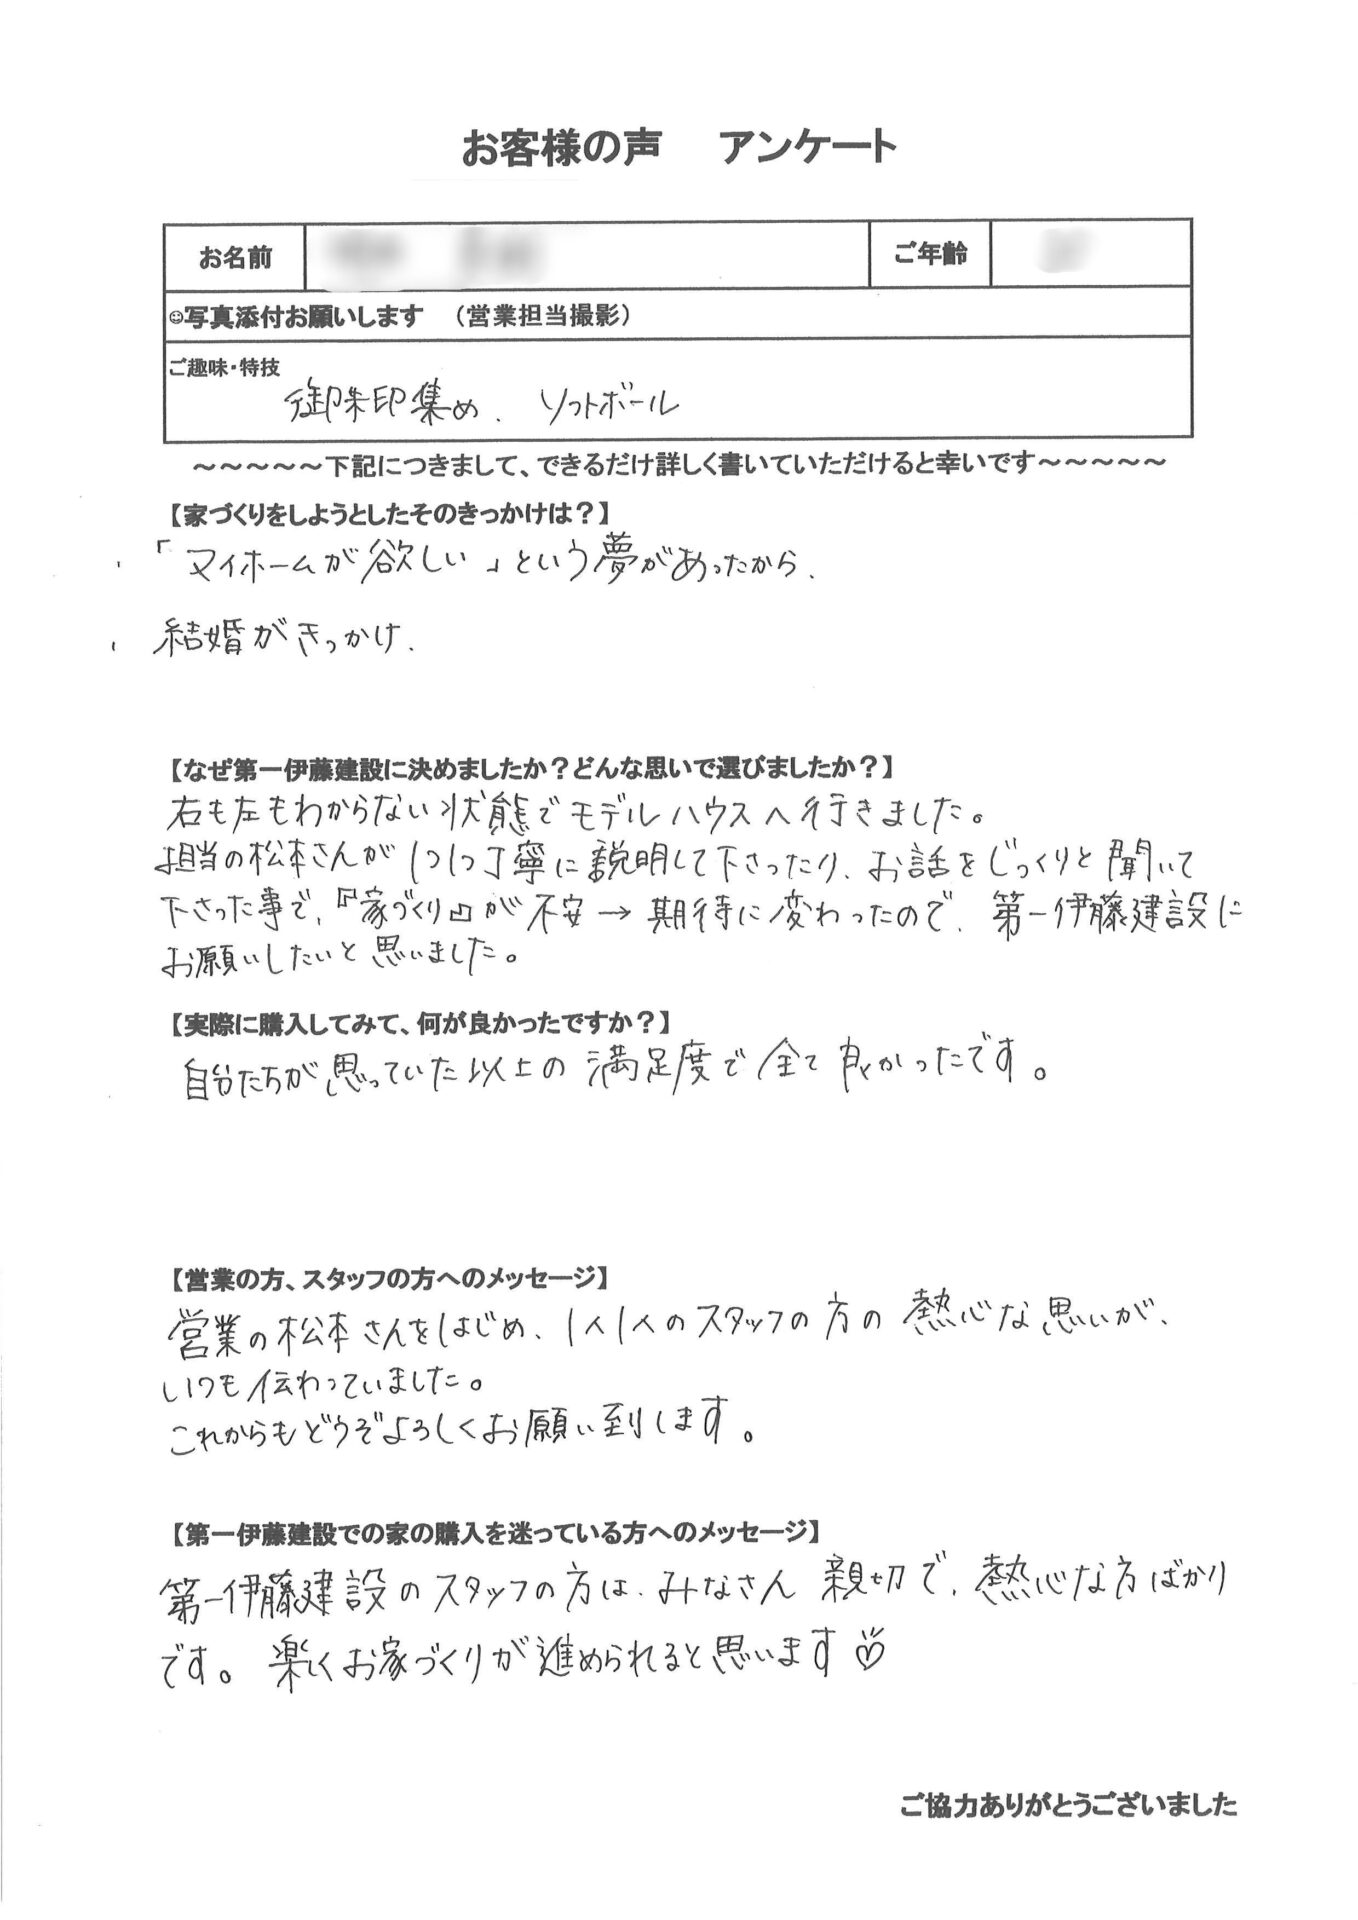 お客様の声　アンケート
お名前
ご年齢
☺写真添付お願いします　（営業担当撮影）
ご趣味・特技
御朱印集め、ソフトボール
～～～～～下記につきまして、できるだけ詳しく書いていただけると幸いです～～～～～
【家づくりをしようとしたそのきっかけは？】
・「マイホームが欲しい」という夢があったから、
・結婚がきっかけ、
【なぜ第一伊藤建設に決めましたか？どんな思いで選びましたか？】
右も左もわからない状態でモデルハウスへ行きました。
担当の松本さんが1つ1つ丁寧に説明して下さったり、お話をじっくりと聞いて
下さった事で、『家づくり』が不安→期待に変わったので、第一伊藤建設に
お願いしたいと思いました。
【実際に購入してみて、何が良かったですか？】
自分たちが思っていた以上の満足度で全て良かったです。
【営業の方、スタッフの方へのメッセージ】
営業の松本さんをはじめ、1人1人のスタッフの方の熱心な思いが、
いつも伝わっていました。
これからもどうぞよろしくお願い到します。
【第一伊藤建設での家の購入を迷っている方へのメッセージ】
第一伊藤建設のスタッフの方は、みなさん親切で、熱心な方ばかり
です。楽しくお家づくりが進められると思います♡
ご協力ありがとうございました